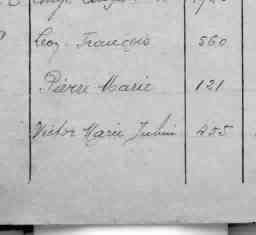 Léon François 560
Pierre Marie 121
Victor Marie Julien 455